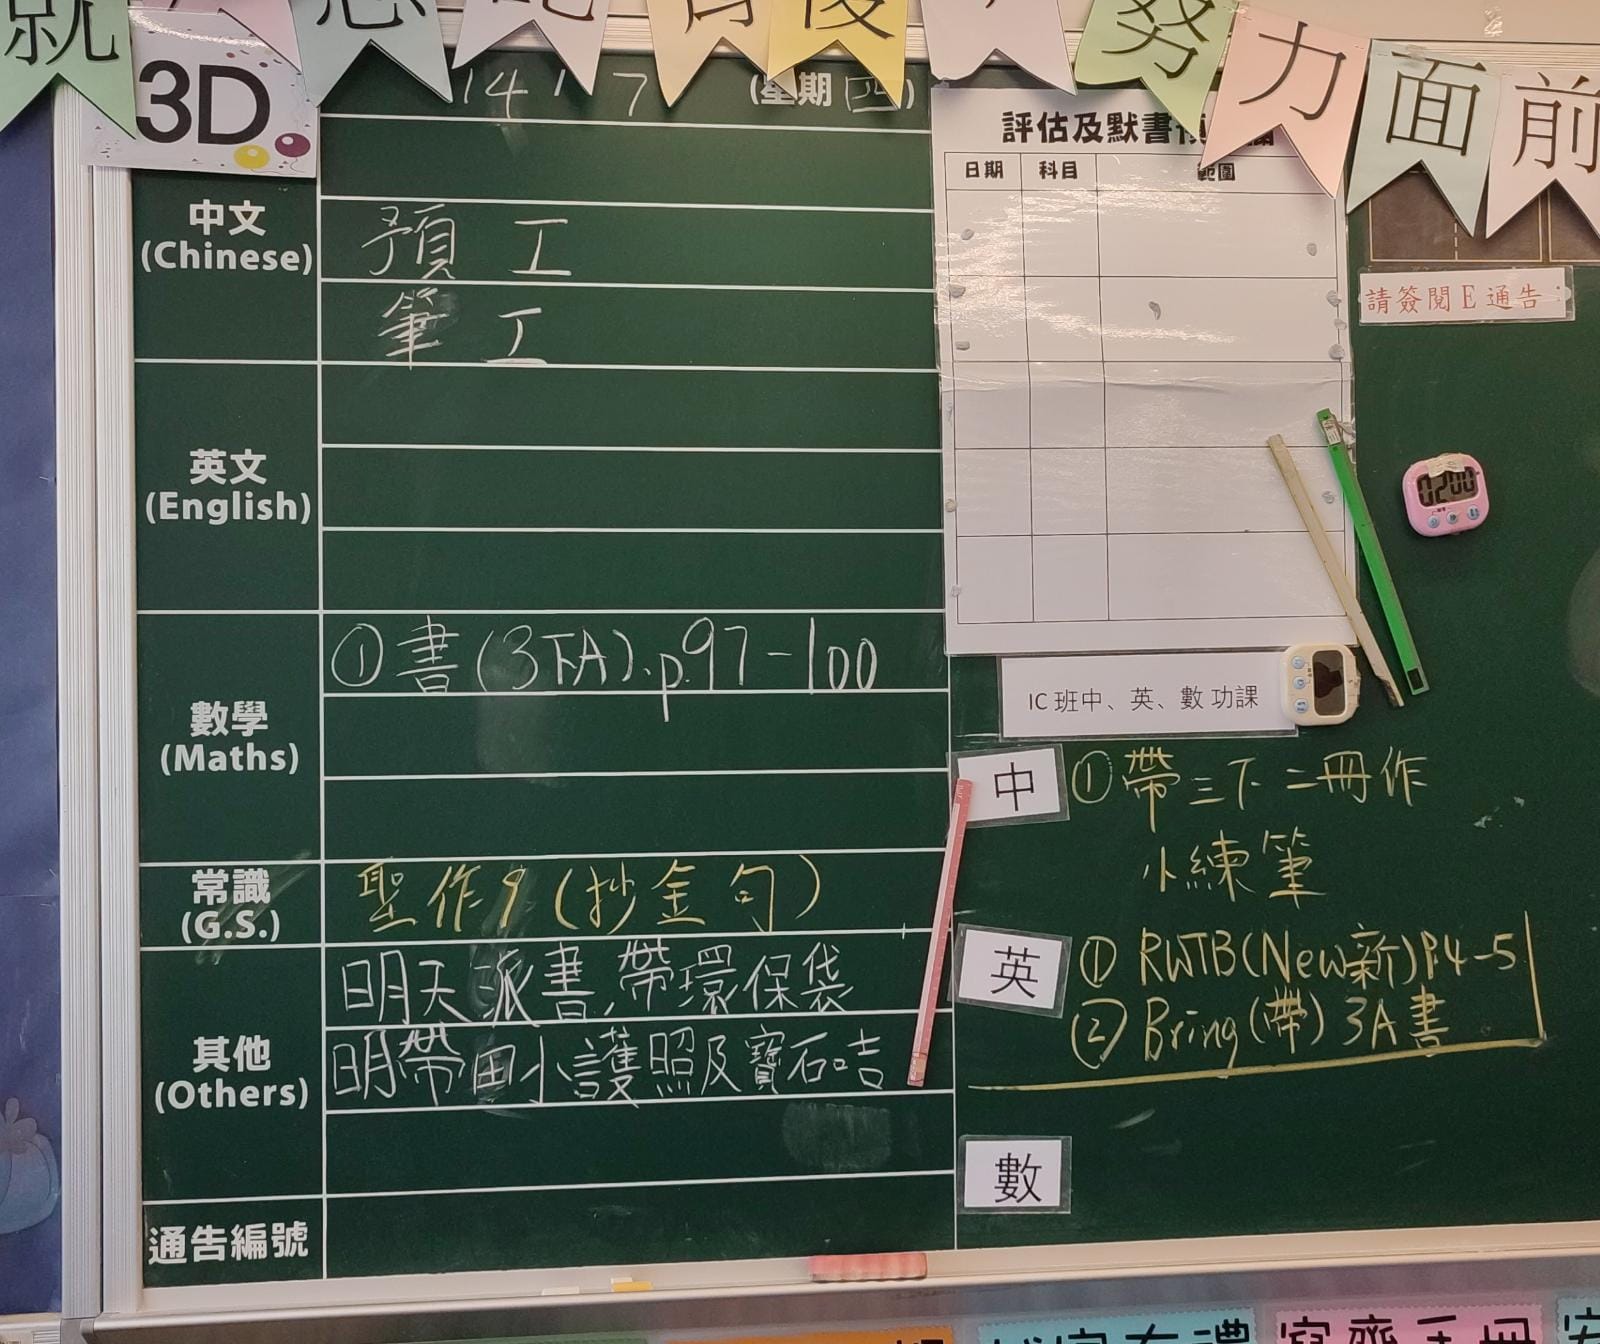 就
背後，努力面前
3D
14 / 7 (星期四)
中文
(Chinese)
預 工
筆 工
英文
(English)
數學
(Maths)
① 書(3下A).p.97-100
常識
(G.S.)
聖作9(抄金句)
其他
(Others)
明天派書,帶環保袋
明帶田小護照及寶石咭
通告編號
評估及默書
日期 科目 範圍
請簽閱E通告
0200
IC 班中、英、數 功課
中
① 帶三下二冊作
小練筆
英
① RWTB(New新)P.4-5
② Bring(帶) 3A書
數